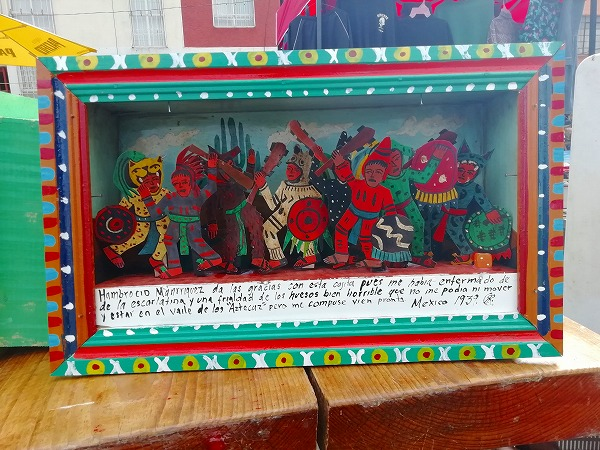 Hambrocio Manriquez da las gracias con esta cajita pues me habia enfermado de
de la escarlatina y una frialdad de los huesos bien horrible que no me podia ni mover
y estar en el vaile de los "Aztecaz" pero me compuse vien pronto Mexico 193?